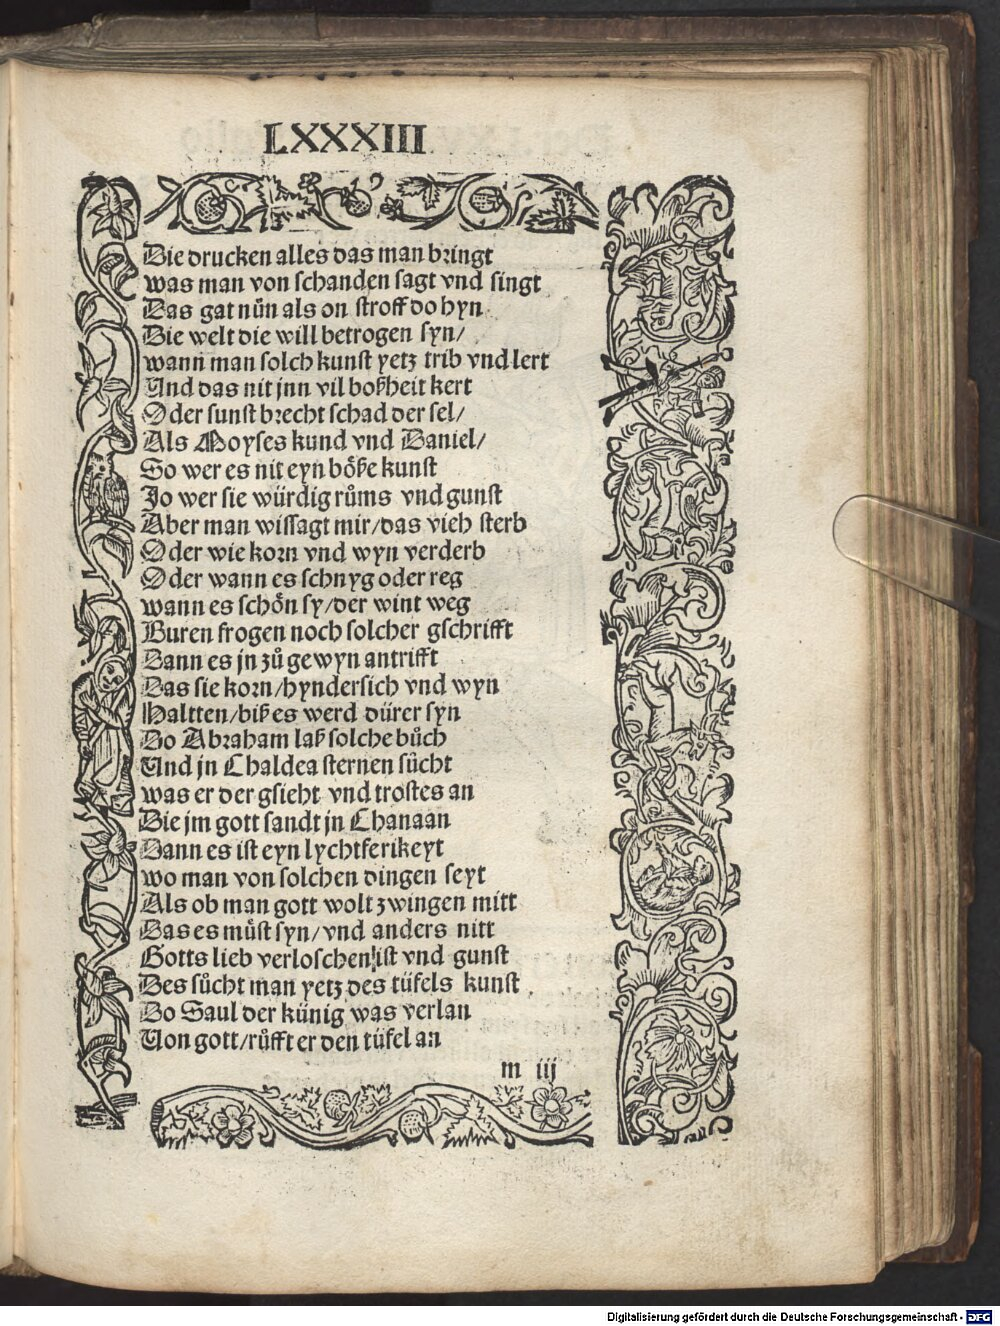 LXXXIII
Die drucken alles das man bringt
was man von schanden sagt vnd singt
Das gat nün als on stroff do hyn
Die welt die will betrogen syn/
wann man solch kunst yetz trib vnd lert
Und das nit jnn vil boßheit kert
Oder sunst brecht schad der sel/
Als Moyses kund vnd Daniel/
So wer es nit eyn böße kunst
Jo wer sie würdig růms vnd gunst
Aber man wissagt mir/das vieh sterb
Oder wie korn vnd wyn verderb
Oder wann es schnyg oder reg
wann es schön sy/der wint weg
Buren frogen noch solcher gschrifft
Dann es jn zů gewyn antrifft
Das sie korn/hyndersich vnd wyn
Haltten/biß es werd dürer syn
Do Abraham laß solche bůch
Und jn Chaldea sternen sůcht
was er der gsieht vnd trostes an
Die jm gott sandt jn Chanaan
Dann es ist eyn lychtferikeyt
wo man von solchen dingen seyt
Als ob man gott wolt zwingen mitt
Das es můst syn/vnd anders nitt
Gotts lieb verloschen ist vnd gunst
Des sůcht man yetz des tüfels kunst
Do Saul der künig was verlan
Von gott/růfft er den tüfel an
m iij
Digitalisierung gefördert durch die Deutsche Forschungsgemeinschaft - DFG